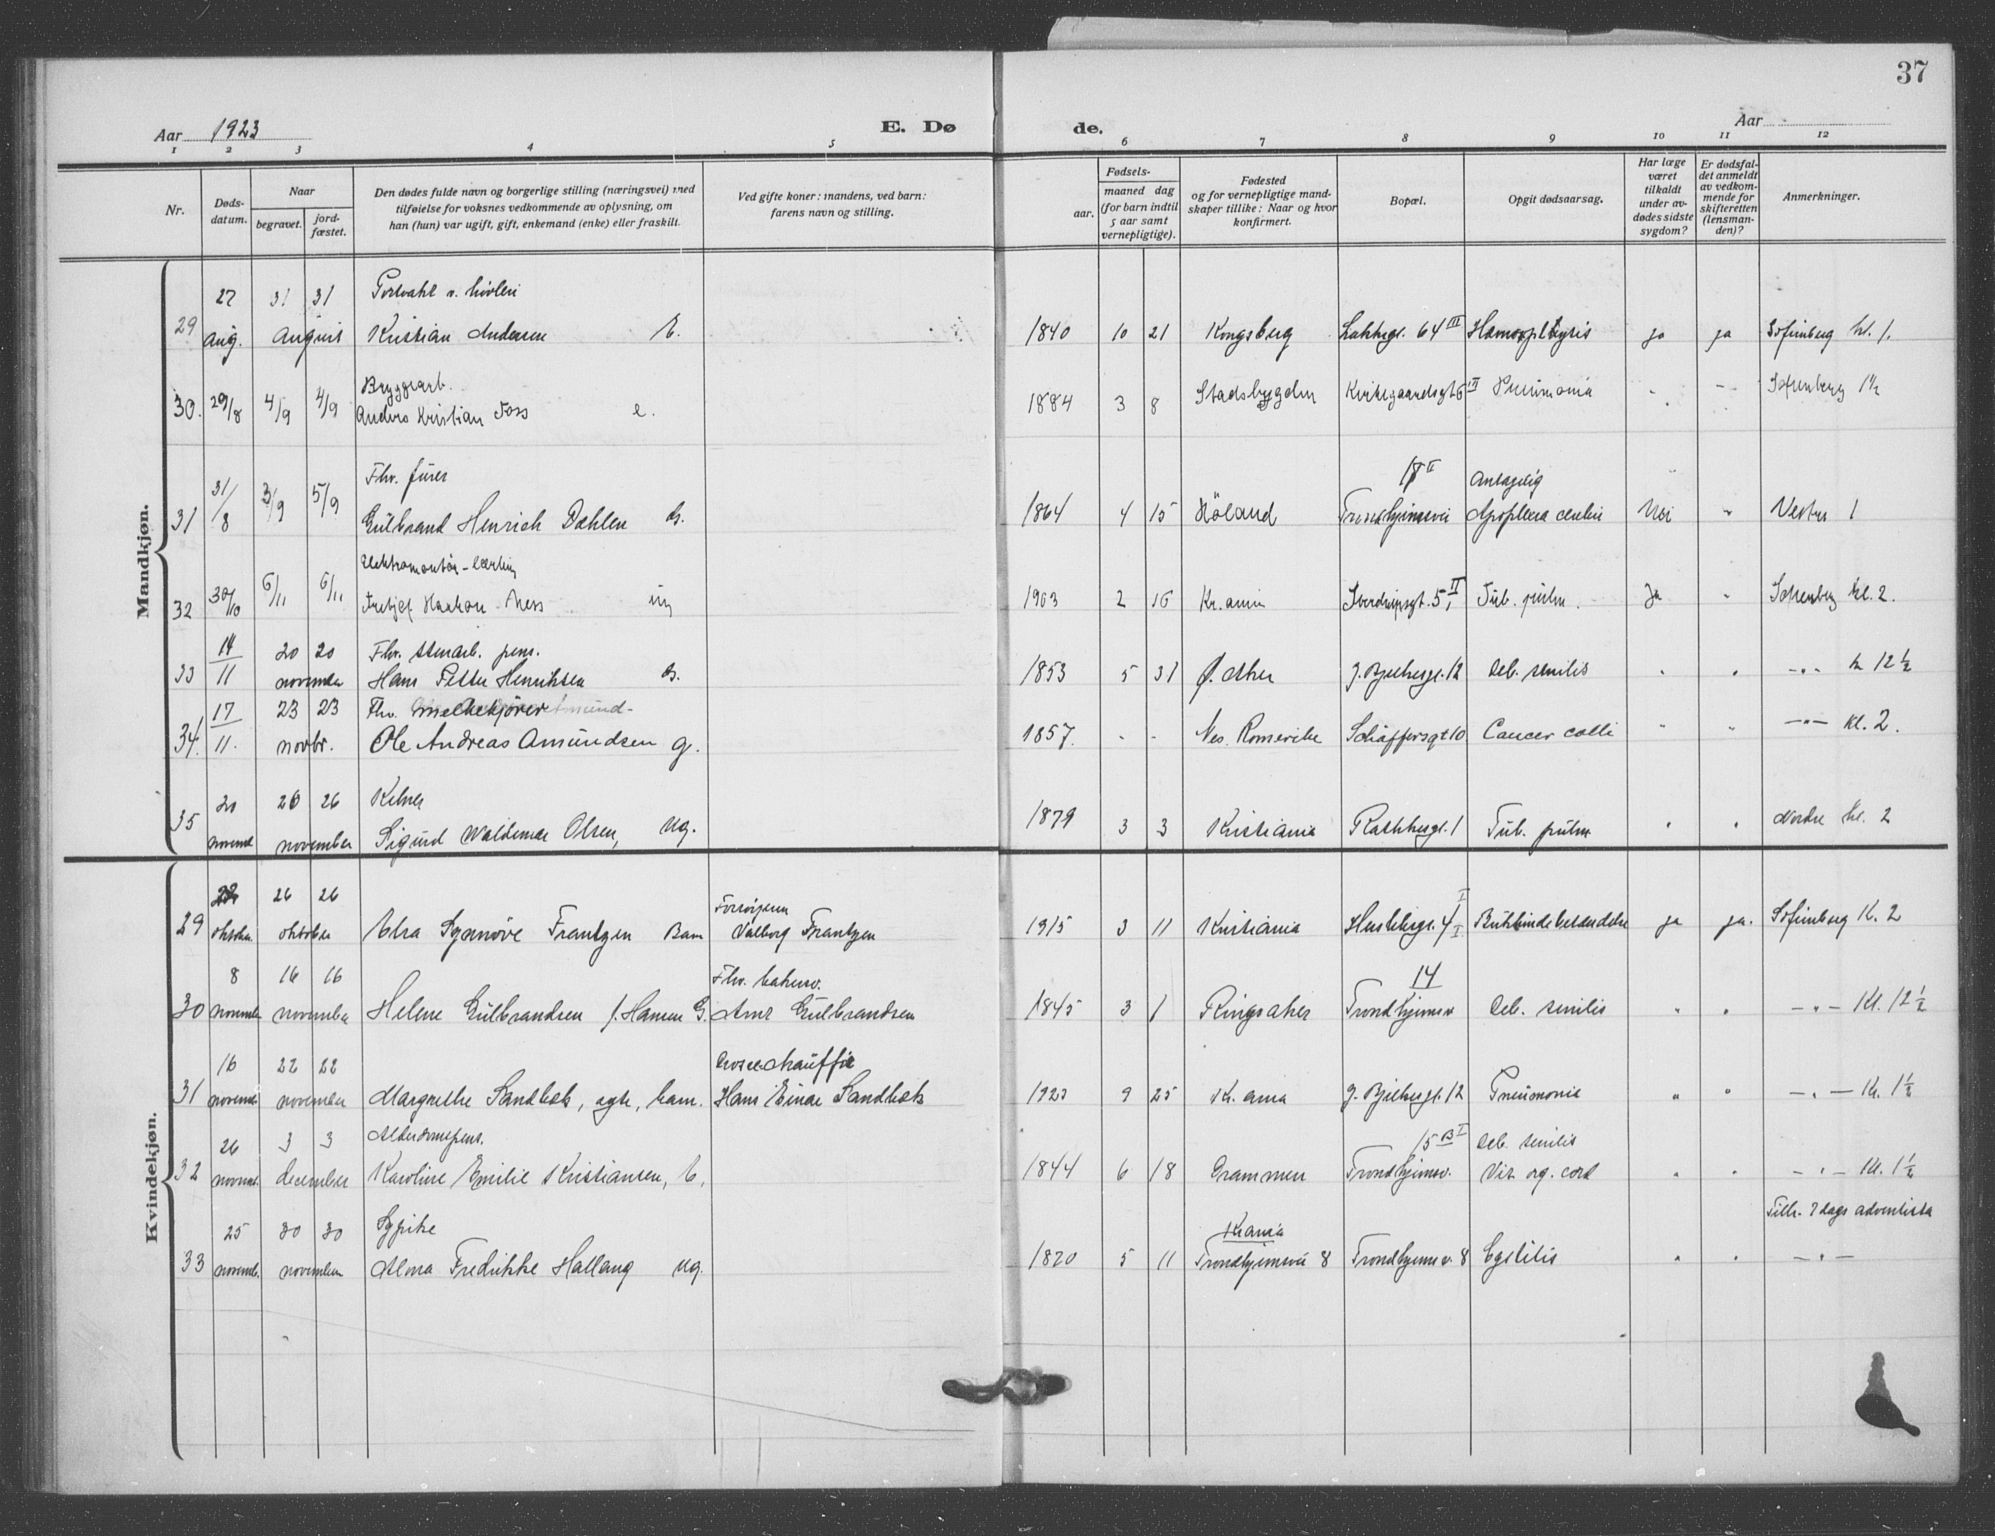 37
Aar 1923
E. Dø
de.
Aar
1 2 3 4 5 6 7 8 9 10 11 12
Nr.
Døds-
datum.
Naar
begravet.
jord-
fæstet.
Den dødes fulde navn og borgerlige stilling (næringsvei) med
tilføielse for voksnes vedkommende av oplysning, om
han (hun) var ugift, gift, enkemand (enke) eller fraskilt.
Ved gifte koner: mandens, ved barn:
farens navn og stilling.
Fødsels-
aar.
maaned dag
(for barn indtil
5 aar samt
vernepligtige).
Fødested
og for vernepligtige mand-
skaper tillike: Naar og hvor
konfirmert.
Bopæl.
Opgit dødsaarsag.
Har læge
været
tilkaldt
under av-
dødes sidste
sygdom?
Er dødsfal-
det anmeldt
av vedkom-
mende for
skifteretten
(lensman-
den)?
Anmerkninger.
Mandkjøn.
27 31 31
29 aug. august Kristian Andersen E. 1840 10 21 Kongsberg 64 III ja ja Sofienberg kl. 1.
Bryggearb.
30. 29/8 4/9 4/9 Anders Kristian Foss e. 1884 3 8 Stadsbygden Kirkegaardsgt 6 III Pneumonia - - Sofienberg 1½
Fhv. furer 18 II Antagelig
31 31/8 3/9 5/9 Gulbrand Henrich Dahlen G. 1864 4 15 Höland Trondhjemsvei Apoplexia Nei " Vestre 1
Elektromontør-Lærling
32 30/10 6/11 6/11 Haakon Næss ug 1903 2 16 Kr.ania Sverdrupsgt. 5, II Tub. pulm. Ja " Sofienberg kl. 2.
Fhv. stenarb. pens.
33 14/11 20 20 november Hans Petter Henriksen G. 1853 5 31 Ø. Aker J. Bjelkesgt. 12 Deb. senilis " " -"- kl 12½
Fhv. melkekjører
34. 17/11. 23 23 novbr. Ole Andreas Amundsen g. 1857. - - Nes. Romerike Schäffersgt 10 Cancer colli " " -"- kl. 2.
20 26 26 Kelner
35 novemb. november Sigurd Waldemar Olsen, ug. 1879 3 3 Kristiania Rathkesgt. 1 Tub. pulm " " Nordre kl. 2
Kvindekjøn.
26 26 Forsörgeren
29 oktober oktober Synnöve Frantzen Barn Valborg Frantzen 1915 3 11 Kristiania 4 I Bukhindebetændelse ja ja. Sofienberg Kl. 2
8 16 16 Fhv. 14
30 november november Helene Gulbrandsen f. Hansen G. Arne Gulbrandsen 1845 3 1 Ringsaker Trondhjemsv Deb. senilis " " -"- Kl. 12½
16 22 22 Drosechauffør
31 novemb. november Margrethe Sandbæk, egte, barn. Hans Einar Sandbæk 1923 9 25 Kr. ania J. Bjelkesgt. 12 Pneumonia " " -"- Kl. 1½
26 3 3 Alderdomspens. 15 B I Deb. senilis
32 novemb. december Karoline Emilie Kristiansen, E, 1844 6 18 Drammen Trondhjemsv. Vit. org. cord " " -"- Kl. 1½
25 30 30 Sypike Kr.ania Tilh. 7 dags adventista
33 novemb. november Alma Fredrikke Hallang ug. 1870 5 11 Trondhjemsvei 8 Trondhjemsv. 8 Cystitis " " -"-